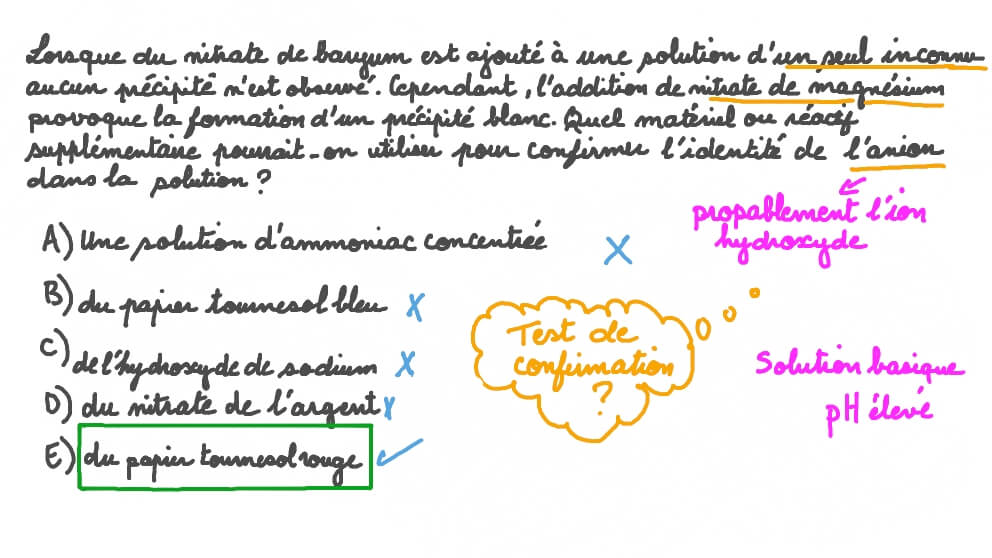 Lorsque du nitrate de baryum est ajouté à une solution d'un seul inconnu
aucun précipité n'est observé. Cependant, l'addition de nitrate de magnésium
provoque la formation d'un précipité blanc. Quel matériel ou réactif
supplémentaire pourrait-on utiliser pour confirmer l'identité de l'anion
dans la solution ?
propablement l'ion
hydroxyde
A) Une solution d'ammoniac concentrée
B) du papier tournesol bleu
C) de l'hydroxyde de sodium
D) du nitrate de l'argent
E) du papier tournesol rouge
Test de
confirmation
?
Solution basique
pH élevé